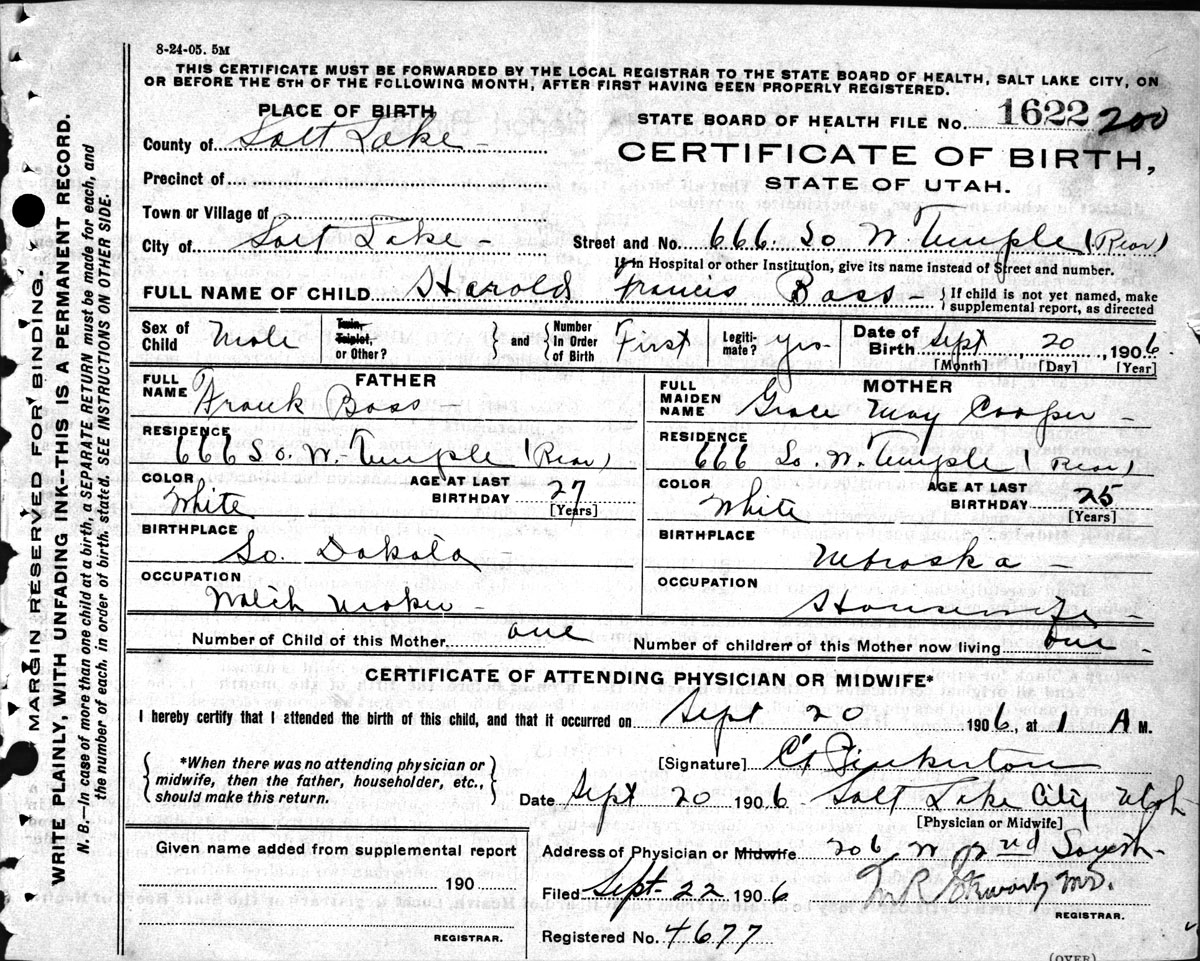 8-24-05. 5M
THIS CERTIFICATE MUST BE FORWARDED BY THE LOCAL REGISTRAR TO THE STATE BOARD OF HEALTH, SALT LAKE CITY, ON
OR BEFORE THE 5TH OF THE FOLLOWING MONTH, AFTER FIRST HAVING BEEN PROPERLY REGISTERED.
PLACE OF BIRTH
County of Salt Lake
Precinct of
Town or Village of
City of Salt Lake
STATE BOARD OF HEALTH FILE No. 1622 200
CERTIFICATE OF BIRTH,
STATE OF UTAH.
Street and No. 666 So W. Temple (Rear)
If in Hospital or other Institution, give its name instead of Street and number.
FULL NAME OF CHILD Harold Francis Bass { If child is not yet named, make
supplemental report, as directed
Sex of Child Male
Twin, Triplet, or Other? } and { Number In Order of Birth First
Legitimate? yes
Date of Birth Sept 20, 1906.
[Month] [Day] [Year]
FATHER
FULL NAME Frank Bass
RESIDENCE 666 So. W. Temple (Rear)
COLOR White AGE AT LAST BIRTHDAY 27
[Years]
BIRTHPLACE So. Dakota
OCCUPATION Watch Maker
MOTHER
FULL MAIDEN NAME Grace May Cooper
RESIDENCE 666 So. W. Temple (Rear)
COLOR White AGE AT LAST BIRTHDAY 25
[Years]
BIRTHPLACE Nebraska
OCCUPATION Housewife
Number of Child of this Mother one Number of children of this Mother now living one
CERTIFICATE OF ATTENDING PHYSICIAN OR MIDWIFE*
I hereby certify that I attended the birth of this child, and that it occurred on Sept 20 1906, at 1 A M.
{ *When there was no attending physician or
midwife, then the father, householder, etc.,
should make this return. }
[Signature] Pinkerton
Date Sept 20 1906 Salt Lake City Utah
[Physician or Midwife]
Given name added from supplemental report
190
REGISTRAR.
Address of Physician or Midwife 206 W 2nd South
Filed Sept. 22 1906 M.D.
REGISTRAR.
Registered No. 4677
(OVER)
MARGIN RESERVED FOR BINDING.
WRITE PLAINLY, WITH UNFADING INK--THIS IS A PERMANENT RECORD.
N. B.—In case of more than one child at a birth, a SEPARATE RETURN must be made for each, and
the number of each, in order of birth, stated. SEE INSTRUCTIONS ON OTHER SIDE.